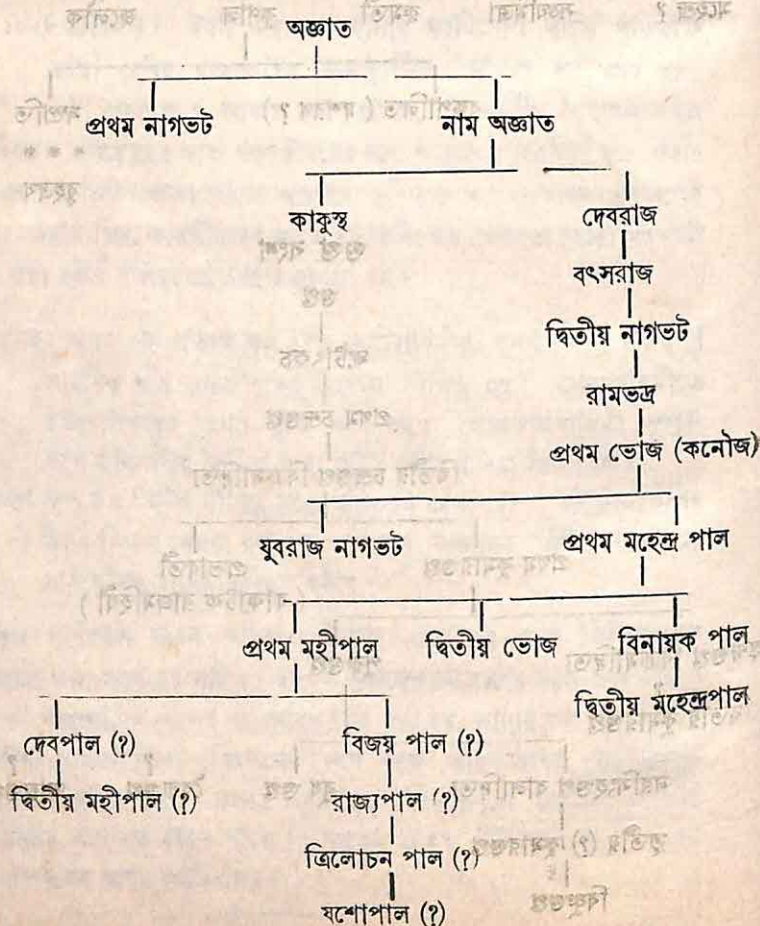 অজ্ঞাত
প্রথম নাগভট নাম অজ্ঞাত
কাকুস্থ দেবরাজ
বৎসরাজ
দ্বিতীয় নাগভট
রামভদ্র
প্রথম ভোজ (কনৌজ)
যুবরাজ নাগভট প্রথম মহেন্দ্র পাল
প্রথম মহীপাল দ্বিতীয় ভোজ বিনায়ক পাল
দ্বিতীয় মহেন্দ্রপাল
দেবপাল (?) বিজয় পাল (?)
দ্বিতীয় মহীপাল (?) রাজ্যপাল (?)
ত্রিলোচন পাল (?)
যশোপাল (?)